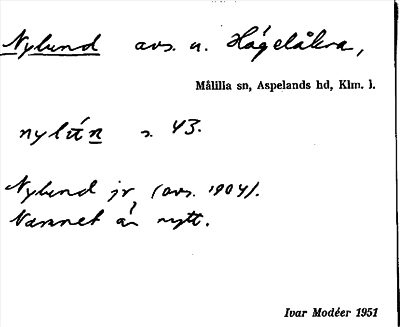 Nylund avs. u. Högelåkra,
Målilla sn, Aspelands hd, Klm. l.
s. 43.
Nylund jr, (avs. 1904).
Namnet är nytt.
Ivar Modéer 1951